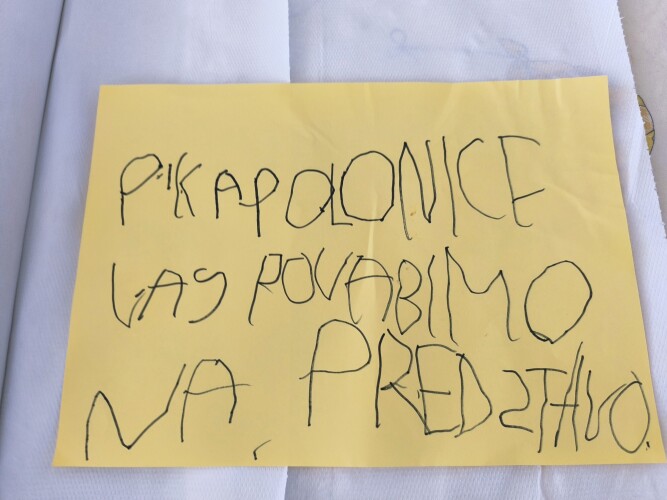 PIKAPOLONICE
VAS POVABIMO
NA PREDSTAVO.